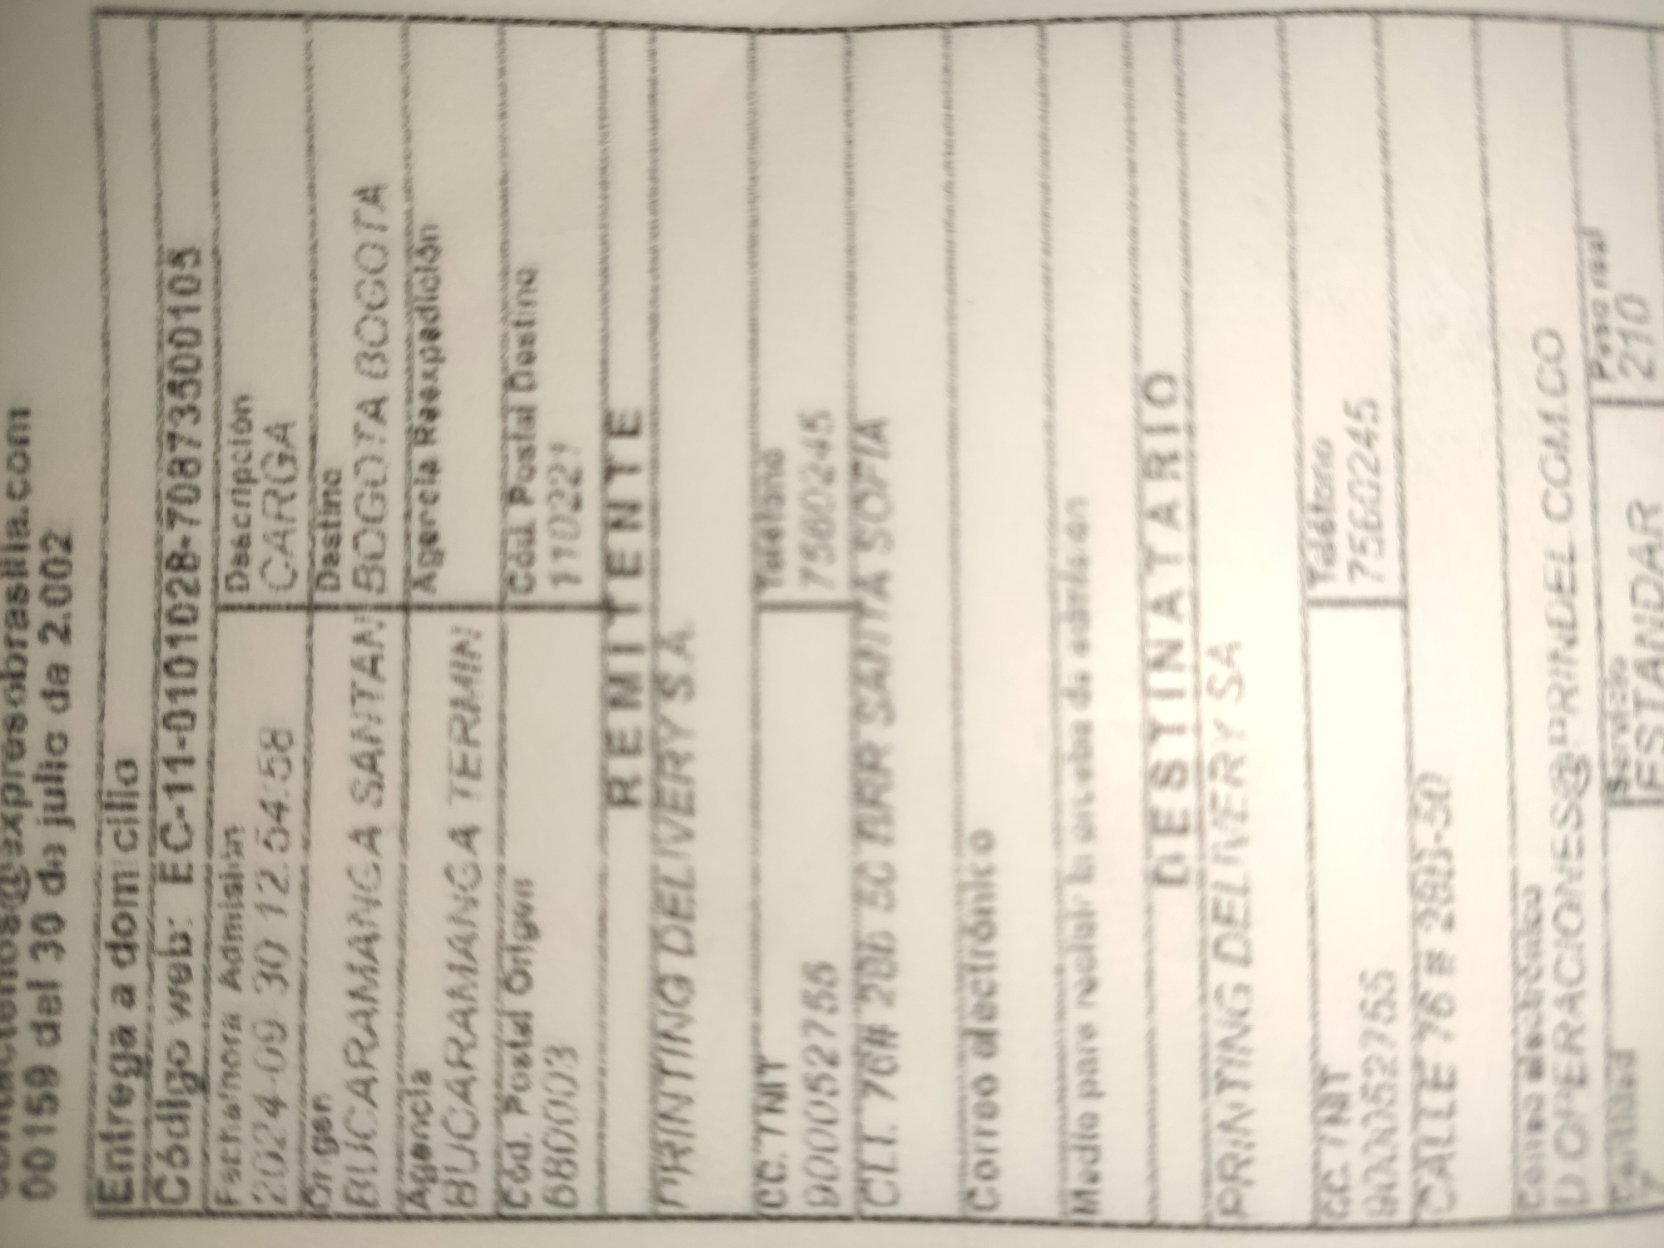 00159 del 30 de julio de 2.002
Entrega a domicilio
Código web: EC-11-0101028-70873500105
Fecha/hora Admisión Descripción
2024-09-30 12:54:58 CARGA
Origen Destino
BUCARAMANGA SANTAN BOGOTA BOGOTA
Agencia Agencia Reexpedición
BUCARAMANGA TERMIN
Cód. Postal Origen Cód. Postal Destino
680003 110221
REMITENTE
PRINTING DELIVERY S A
CC. / NIT Teléfono
9000052755 7560245
CLL 76# 28b 50 BRR SANTA SOFIA
Correo electrónico
Medio para recibir la prueba de admisión
DESTINATARIO
PRINTING DELIVERY SA
CC. / NIT Teléfono
9000052755 7560245
CALLE 76 # 28B-50
Correo electrónico
OPERACIONES@PRINDEL.COM.CO
Servicio Peso real
ESTANDAR 210